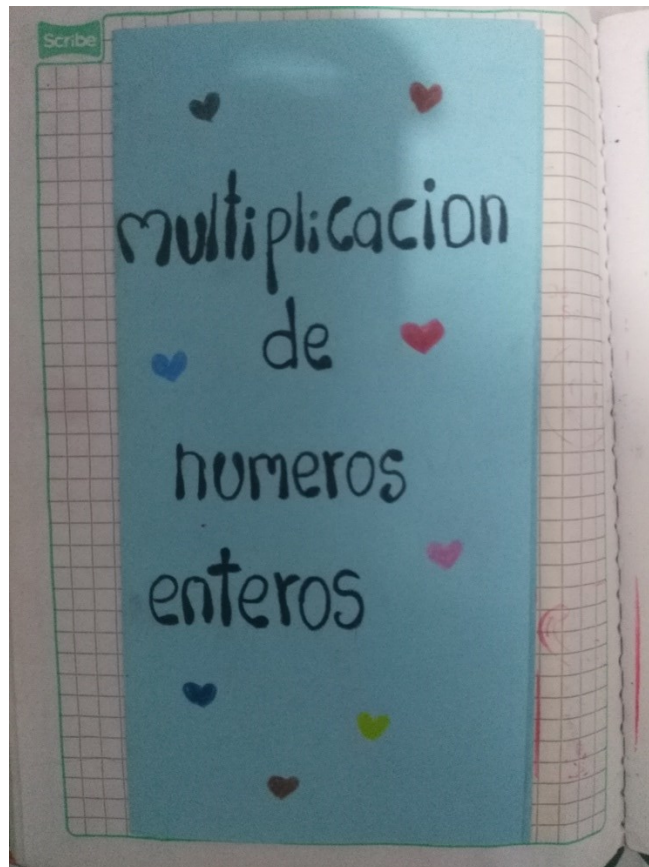 Scribe
multiplicacion
de
numeros
enteros